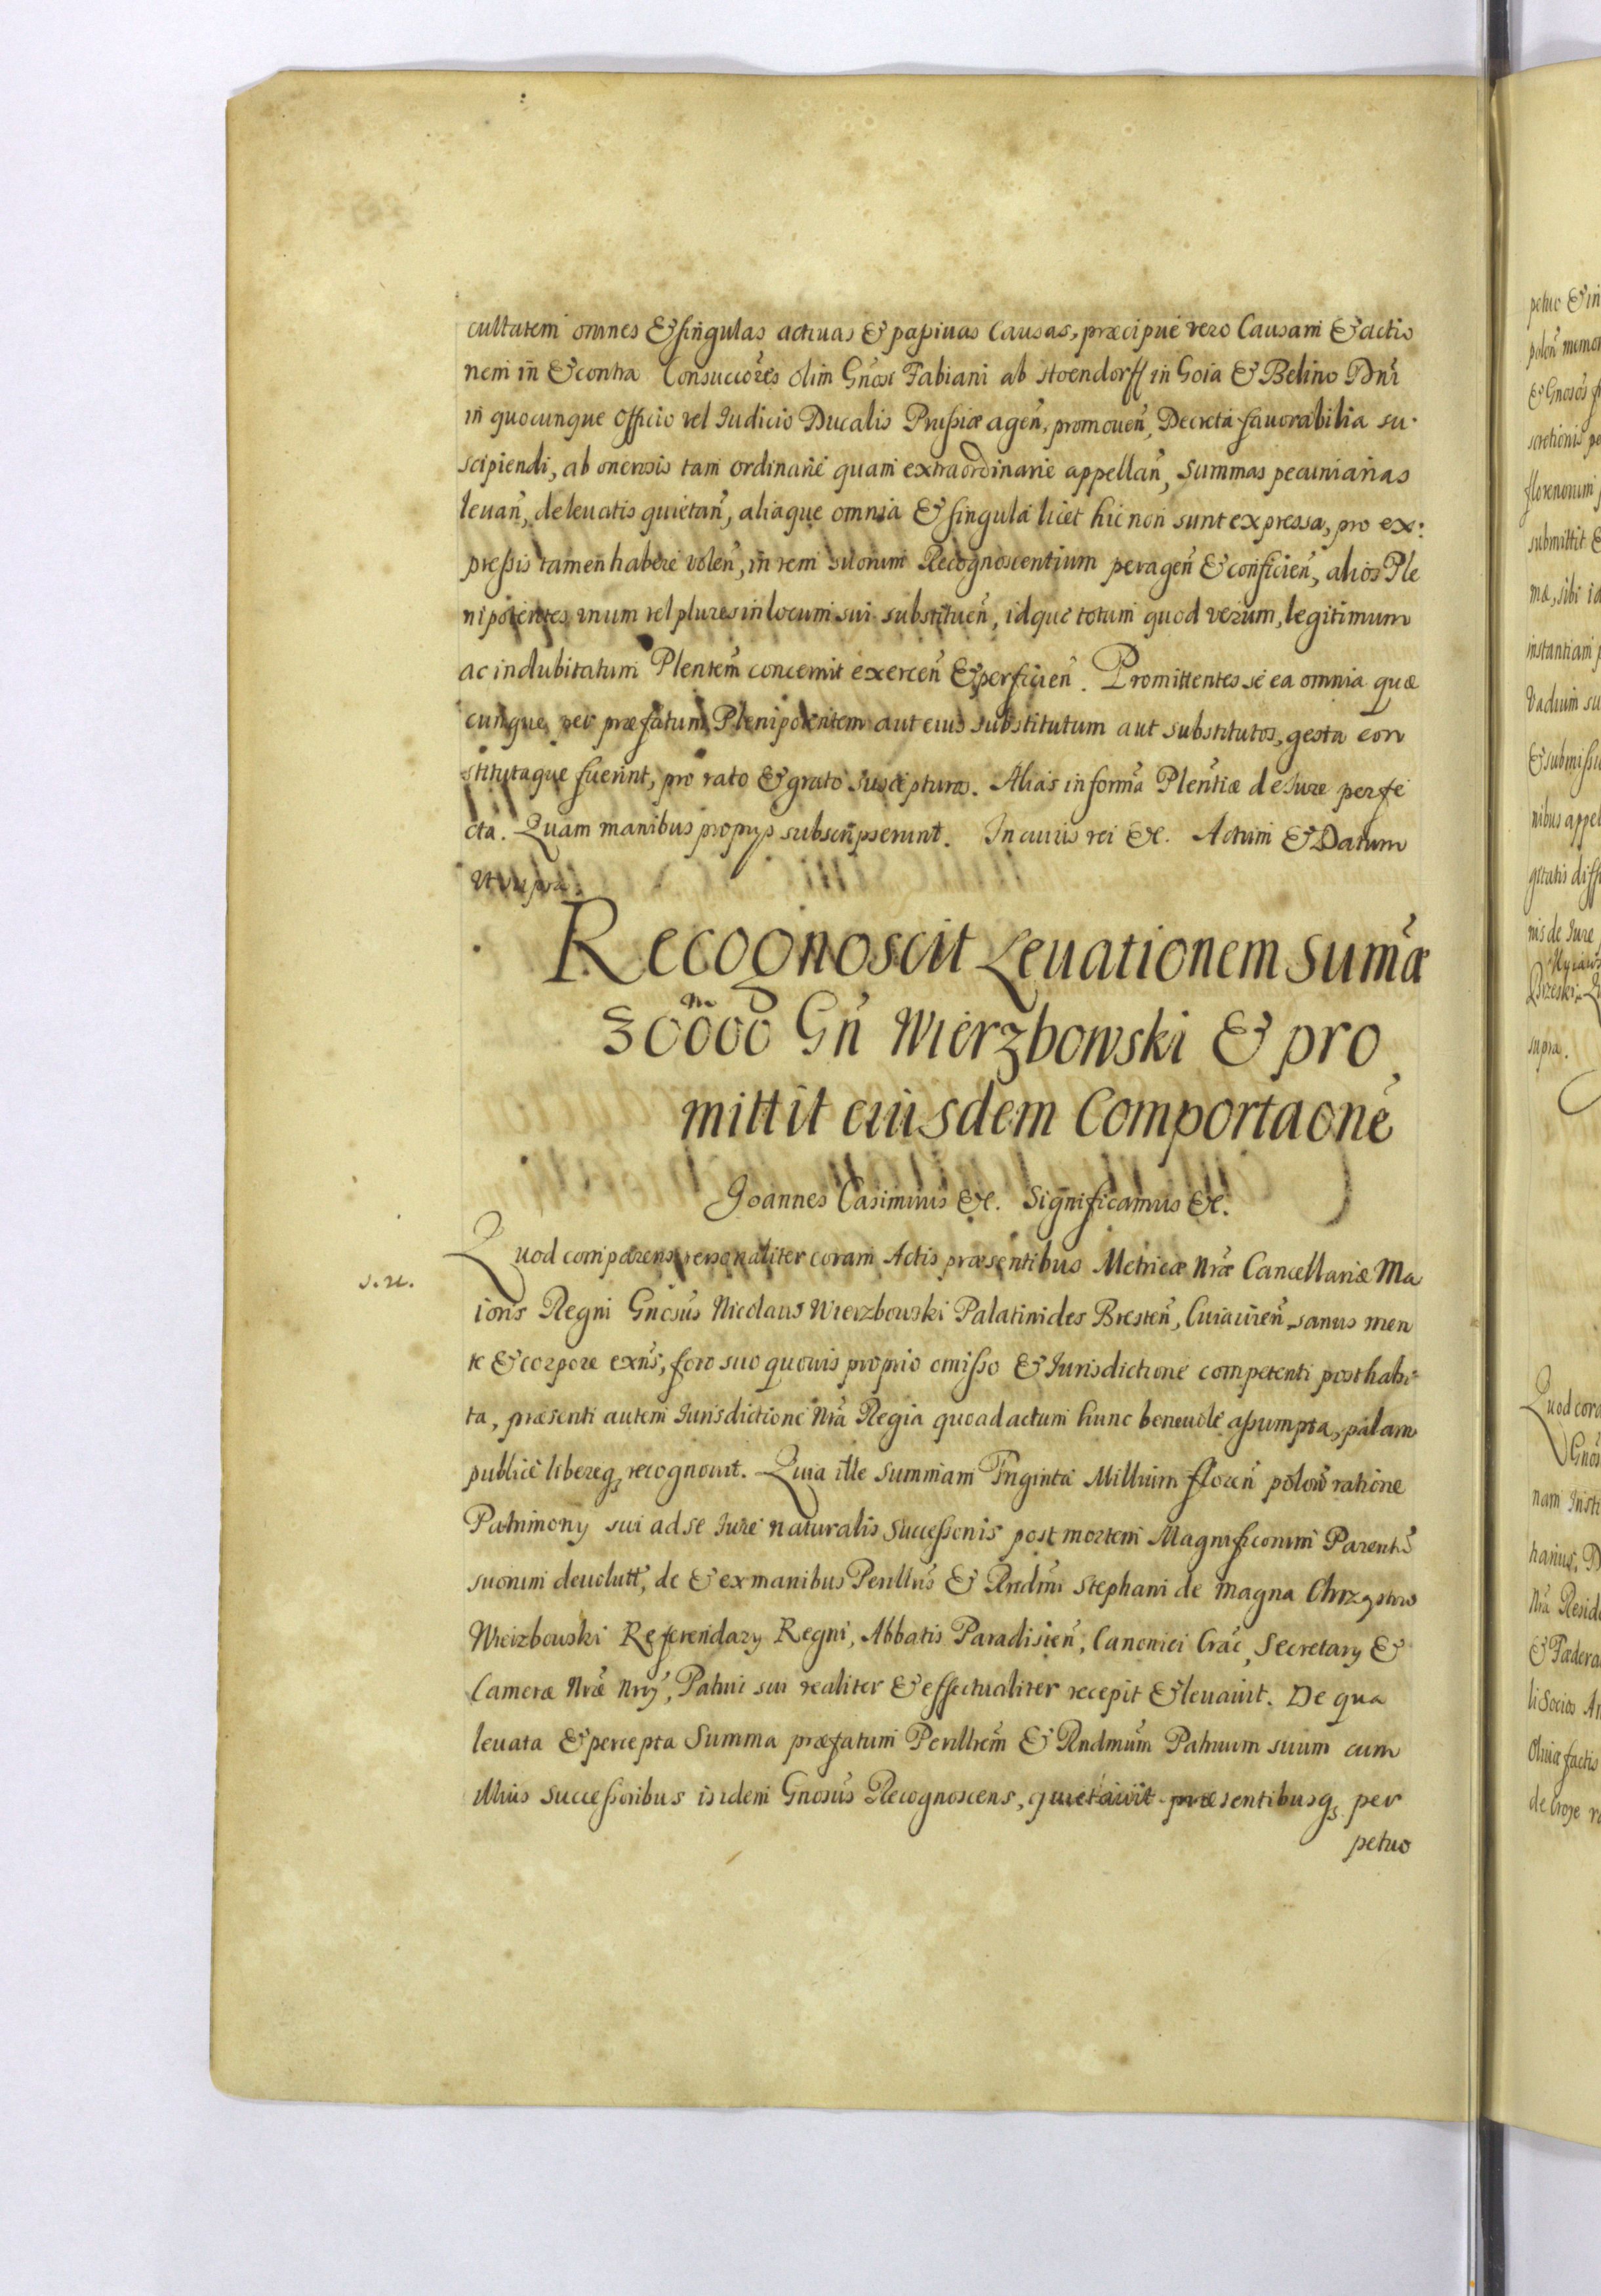 cultatem omnes & singulas activas & passivas Causas, præcipué vero Causam & actio
nem in & contra Consuccõres olim Gnõsi Fabiani ab Hoendorff in Goia & Belino Dnĩ
in quocunque Officio vel Iudicio Ducalis Prussiæ ageñ, promoueñ, Decreta fauorabilia su-
scipiendi, ab onerosis tam ordinarié quam extraordinarie appellañ, Summas pecuniarias
leuañ, de leuatis quietañ, aliaque omnia & singula licet hic non sunt expressa, pro ex:
pressis tamen habere voleñ, in rem suorum Recognoscentium perageñ & conficieñ, alios Ple
nipotentes vnum vel plures in locum sui substitueñ, idque totum quod verum, legitimum
ac indubitatum Plentem̃ concernit exerceñ & perficieñ. Promittentes se ea omnia quæ
cunque per præfatum Plenipotentem aut eius substitutum aut substitutos, gesta con
stitutaque fuerint, pro rato & grato susceptura. Alias in formã Plentiæ de Iure perfe
cta. Quam manibus proprijs subscripserunt. In cuius rei &c. Actum & Datum
vt supra.
Recognoscit Leuationem Sum̃æ
30000 m Gñ Wierzbowski & pro
mittit eiusdem Comportaõne
Joannes Casimirus &c. Significamus &c.
Quod comparens personaliter coram Actis præsentibus Metricæ Nrãe Cancellariæ Ma
s. n.
ioris Regni Gnosũs Nicolaus Wierzbowski Palatinides Bresteñ, Cuiavieñ sanus men
te & corpore exñs, foro suo quouis proprio omisso & Iurisdictione competenti posthabi
ta, præsenti autem Iurisdictione Nrã Regia quoad actum hunc beneuole assumpta, palam
publicé libereq recognouit. Quia ille Summam Triginta Millium floreñ poloñ ratione
Patrimony sui ad se Iure naturalis Successionis post mortem Magnificorum Parentũ
suorum deuolutĩ, de & ex manibus Perillrĩs & Rndmĩ Stephani de Magna Chrząstow
Wierzbowski Referendary Regni, Abbatis Paradisieñ, Canonici Crac̃, Secretary &
Cameræ Nrãe Nrĩj, Patrui sui realiter & effectualiter recepit & leuauit. De qua
leuata & percepta Summa præfatum Perillrem̃ & Rndmum̃ Patruum suum cum
illius Successoribus isidem Gnosũs Recognoscens, quietauit præsentibusq per
petuo